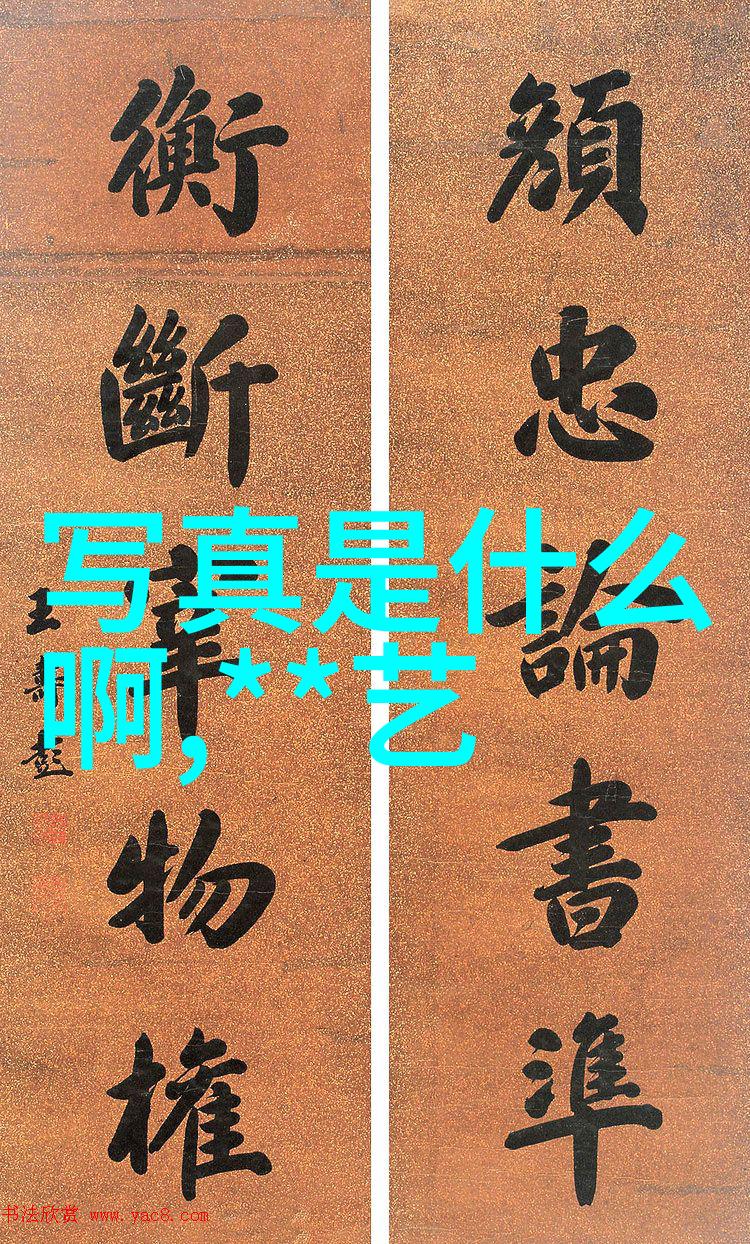 顏忠論書準
衡斷華物權
王壽彭
写真是什么
啊,**艺
书法欣赏 www.yac8.com